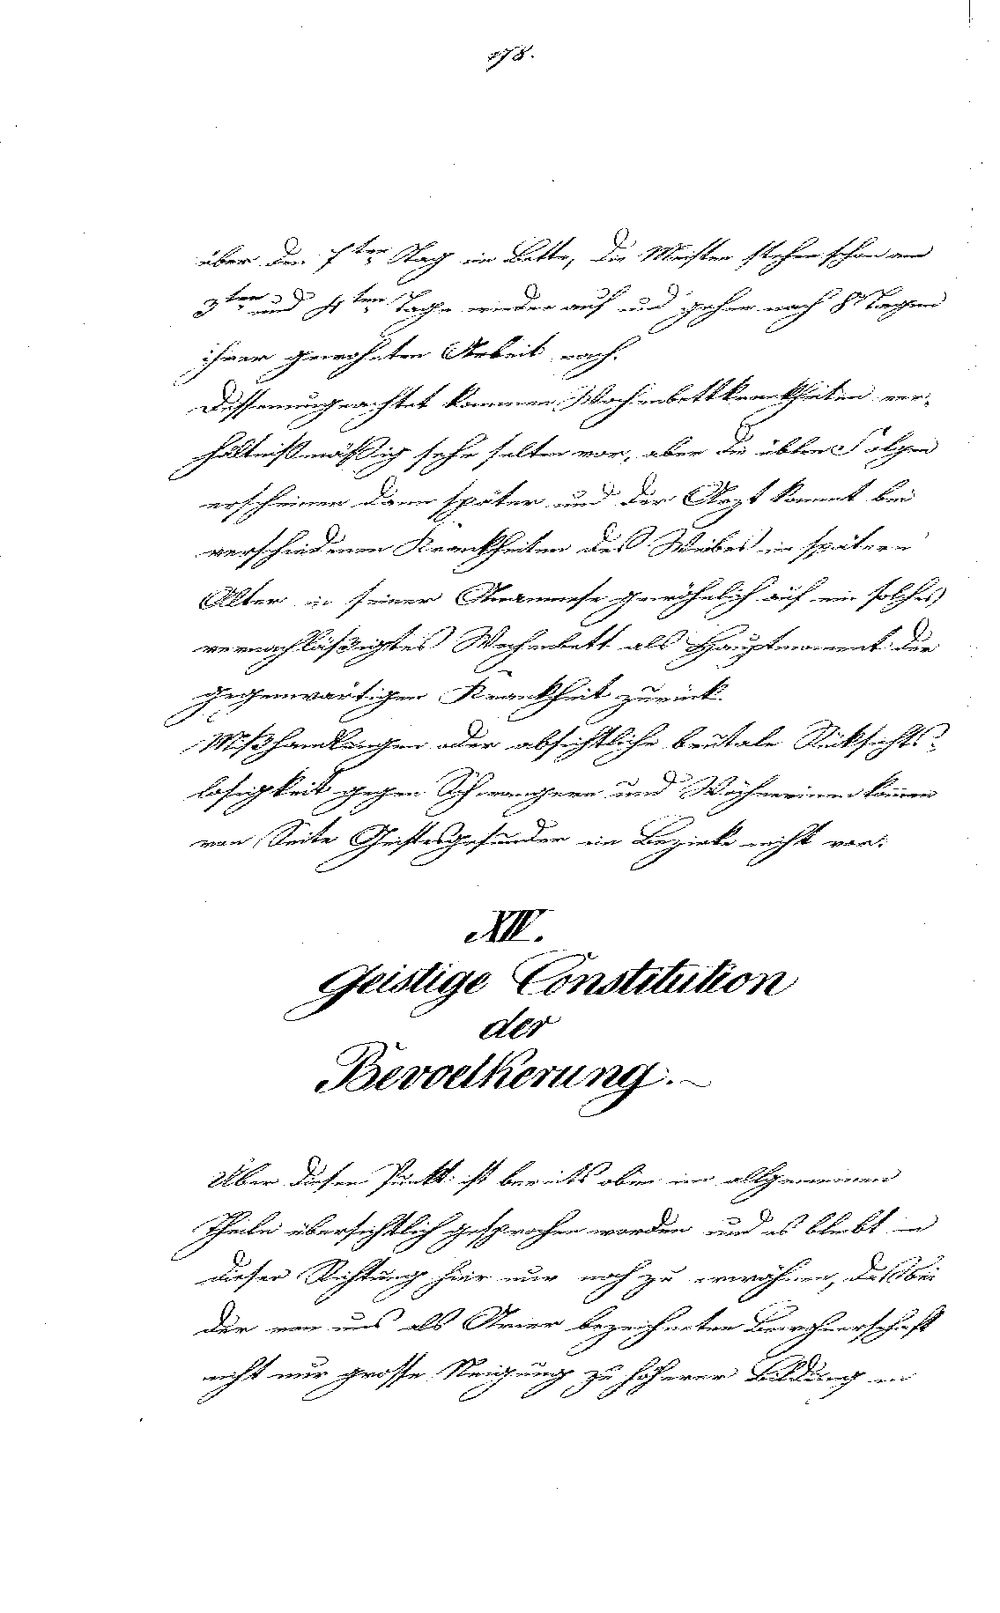 178.
über den 7ten Tag im Bette, die Meisten stehen schon am
3ten und 4ten Tage wieder auf und gehen nach 8 Tagen
ihrer gewohnten Arbeit nach.
Dessenungeachtet kommen Wochenbettkrankheiten ver-
hältnißmäßig sehr selten vor, aber die üblen Folgen
erscheinen dann später und der Arzt kommt bei
verschiedenen Krankheiten des Weibes im spätern
Alter in seiner Anamnese gewöhnlich auf ein solches
vernachläßigtes Wochenbett als Hauptmoment der
gegenwärtigen Krankheit zurück.
Mißhandlungen oder absichtliche brutale Rücksichts-
losigkeit gegen Schwangere und Wöchnerinen komen
von Seite Geistesgesunder im Bezirke nicht vor.
XIV.
Geistige Constitution
der
Bevoelkerung.
Über diesen Punkt ist bereits oben im allgemeinen
Theile übersichtlich gesprochen worden und es bleibt in
dieser Richtung hier nur noch zu erwähnen, daß bei
der von uns als Arier bezeichneten Bewohnerschaft
nicht nur grosse Neigung zu höherer Bildung